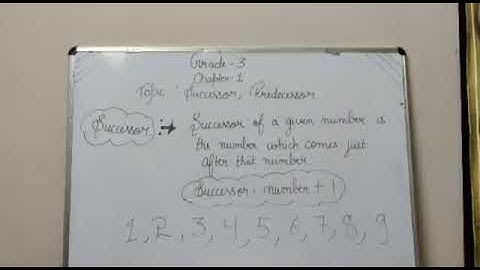 Grade-3
Chapter-1
Topic : Successor, Predecessor
Successor :→ Successor of a given number is
the number which comes just
after that number
Successor = number + 1
1, 2, 3, 4, 5, 6, 7, 8, 9